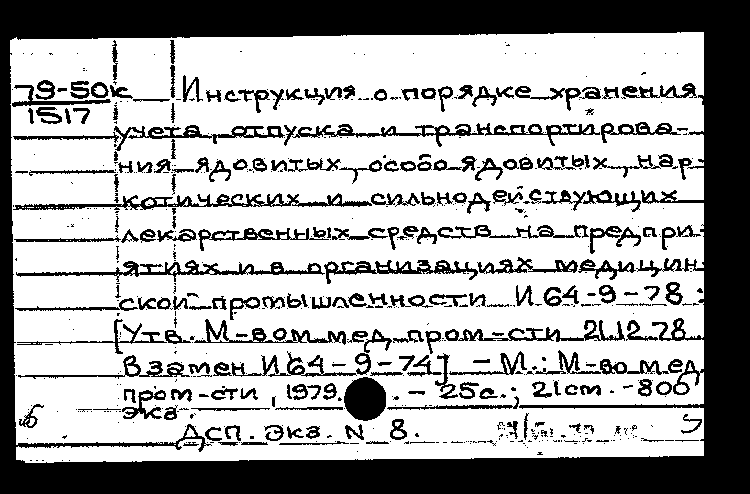 79-50к Инструкция о порядке хранения,
1517
учета, отпуска и транспортирова-
ния ядовитых, особо ядовитых, нар-
котических и сильнодействующих
лекарственных средств на предпри-
ятиях и в организациях медицин-
ской промышленности И 64-9-78:
[Утв. М-вом мед. пром-сти 21.12.78.
Взамен И 64-9-74] - М.: М-во мед.
пром-сти, 1979. - 25с.; 21см. - 800
экз.
ДСП. Экз. N 8.